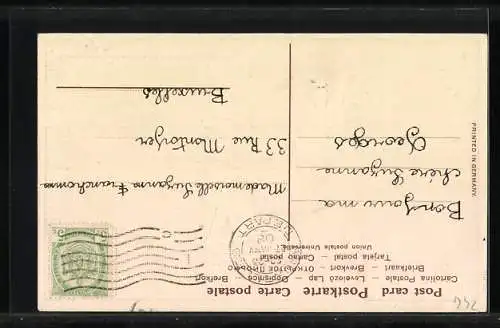 Post card Postkarte Carte postale
Cartolina Postale – Levelező Lap – Dopisnice – Открытое письмо
Briefkaart – Brevkort – Briefkort
Tarjeta postal – Carte postal
Union postale Universelle
DEPART
Bonjour ma
chère Suzanne
Georges
Mademoiselle Suzanne
33 Rue Montoyer
Bruxelles
PRINTED IN GERMANY